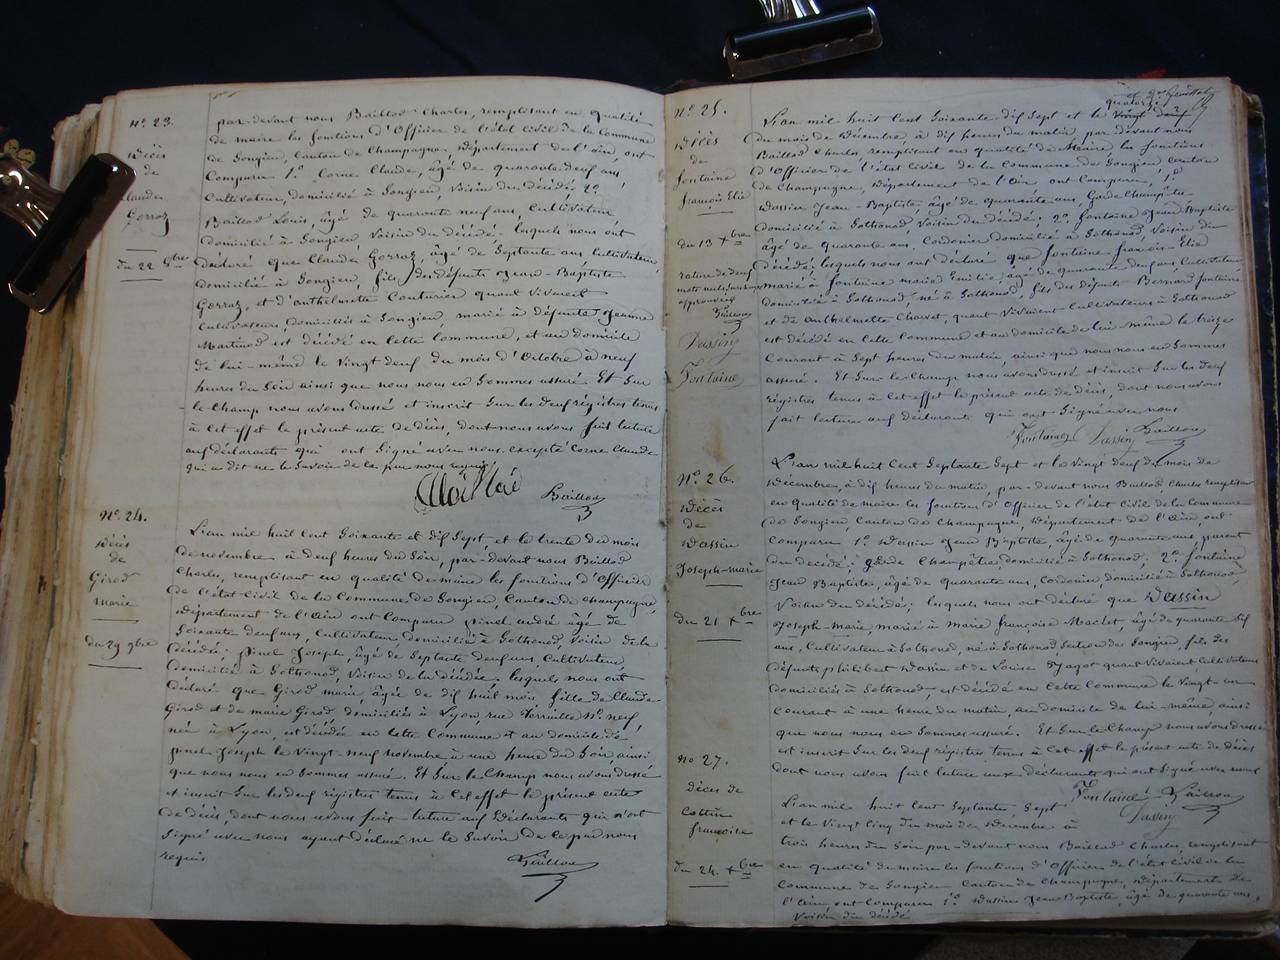 N° 23.
Décès
de
Claude
Gorroz
du 22 8bre
par-devant nous Baillod Charles, remplisant en qualité
de maire les fontions d'Officier de l'état civil de la Commune
de Songieu, Canton de Champagne Département de l'ain, ont
Comparu 1° Corne Claude, âgé de quarante neuf ans,
Cultivateur, domicilié à Songieu, Voisin du décédé 2°
Baillod Louis, âgé de quarante neuf ans, Cultivateur
domicilié à Songieu, Voisin du décédé. lesquels nous ont
déclaré que Claude Gorroz, âgé de Septante ans, Cultivateur
domicilié à Songieu, fils des défunts Jean-Baptiste
Gorroz, et d'anthelmette Couturier quant Vivaient
Cultivateurs domiciliés à Songieu marié à défunte Jeanne
Martinod est décédé en cette commune, et au domicile
de lui-même le vingt deux du mois d'Octobre à neuf
heures du Soir ainsi que nous nous en Sommes assuré. Et Sur
le Champ nous avons dressé et inscrit Sur les deux régistres tenus
à cet effet le présent acte de décès, dont nous avons fait lecture
aux déclarants qui ont Signé avec nous excepté Corne Claude
qui a dit ne le Savoir de ce par nous requis
Baillod
N° 24.
Décès
de
Girod
marie
du 29 9bre
L'an mil huit Cent Soixante et dix Sept et le trente du mois
de novembre à deux heures du Soir, par-devant nous Baillod
Charles, remplisant en qualité de maire les fontions d'Officier
de l'état civil de la Commune de Songieu, Canton de Champagne
Département de l'ain ont Comparu pinel andré âgé de
Soixante deux ans, Cultivateur domicilié à Sothonod, voisin de la
décédée; pinel Joseph, âgé de Septante deux ans Cultivateur,
domicilié à Sothonod, Voisin de la décédée. lesquels nous ont
déclaré que Girod marie, âgée de dix huit mois fille de Claude
Girod et de marie Girod, domiciliés à Lyon, rue N° neuf,
née à Lyon, est décédée en cette Commune et au domicile de
pinel Joseph le vingt neuf novembre à une heure du Soir, ainsi
que nous nous en Sommes assuré. Et Sur le Champ nous avons dressé
et inscrit Sur les deux régistres tenus à Cet effet le présent acte
de décès, dont nous avons fait lecture aux déclarants qui n'ont
Signé avec nous ayant déclaré ne le Savoir de ce par nous
requis
Baillod
N° 25.
Décès
de
fontaine
françois Elie
du 13 Xbre
rature de deux
mots nuls
approuvés
Baillod
Dassin
Fontaine
quatorze
L'an mil huit Cent Soixante dix Sept et le vingt deux
du mois de Décembre, à dix heures du matin, par devant nous
Baillod Charles, remplisant en qualité de Maire les fonctions
d'Officier de l'état civil de la Commune de Songieu canton
de Champagne, Département de l'Ain, ont Comparu, 1°
Dassin Jean-Baptiste, âgé de quarante ans, Garde Champêtre
domicilié à Sothonod Voisin du décédé; 2° fontaine Jean Baptiste
âgé de quarante ans, Cordonier domicilié à Sothonod Voisin du
décédé; lesquels nous ont déclaré que fontaine françois-Elie
marié à fontaine marie Emilie, âgé de quarante deux ans Cultivateur
domicilié à Sothonod né à Sothonod, fils des défunts Bernard fontaine
et de anthelmette Chavet, quant Vivaient Cultivateurs à Sothonod
est décédé en Cette Commune et au domicile de lui-même le treize
Courant à Sept heures du matin, ainsi que nous nous en Sommes
assuré. Et Sur le Champ nous avons dressé et inscrit Sur les deux
régistres tenus à cet effet le présent acte de décès, dont nous avons
fait lecture aux déclarants qui ont Signé avec nous
Fontaine Dassin Baillod
N° 26.
Décès
de
Dassin
Joseph-marie
du 21 Xbre
L'an mil huit Cent Septante Sept et le vingt deux du mois de
Décembre, à dix heures du matin, par-devant nous Baillod Charles remplisant
en qualité de maire les fontions d'Officier de l'état civil de la Commune
de Songieu, Canton de Champagne, Département de l'Ain, ont
Comparu 1° Dassin Jean Baptiste, âgé de quarante ans, parent
du décédé; garde Champêtre, domicilié à Sothonod; 2° fontaine
Jean Baptiste, âgé de quarante ans, Cordonier, domicilié à Sothonod
Voisin du décédé; lesquels nous ont déclaré que Dassin
Joseph-Marie, marié à Marie françoise Machet, âgé de quarante dix
ans, Cultivateur à Sothonod, né à Sothonod Section de Songieu, fils des
défunts philibert Dassin et de Louise Jagot quant Vivaient Cultivateurs
domiciliés à Sothonod, est décédé en Cette Commune le Vingt un
courant à une heure du matin, au domicile de lui-même, ainsi
que nous nous en Sommes assuré. Et Sur le Champ nous avons dressé
est inscrit Sur les deux régistres tenus à cet effet le présent acte de décès
dont nous avons fait lecture aux déclarants qui ont Signé avec nous
Fontaine Baillod
Dassin
N° 27.
décès de
Cottin
françoise
du 24 Xbre
L'an mil huit Cent Septante Sept
et le vingt Cinq du mois de Décembre à
trois heures du Soir par-devant nous Baillod Charles, remplisant
en qualité de maire les fontions d'Officier de l'état civil de la
Commune de Songieu canton de Champagne, Département de
l'Ain ont Comparu 1° Dassin Jean Baptiste, âgé de quarante ans,
Voisin du décédé